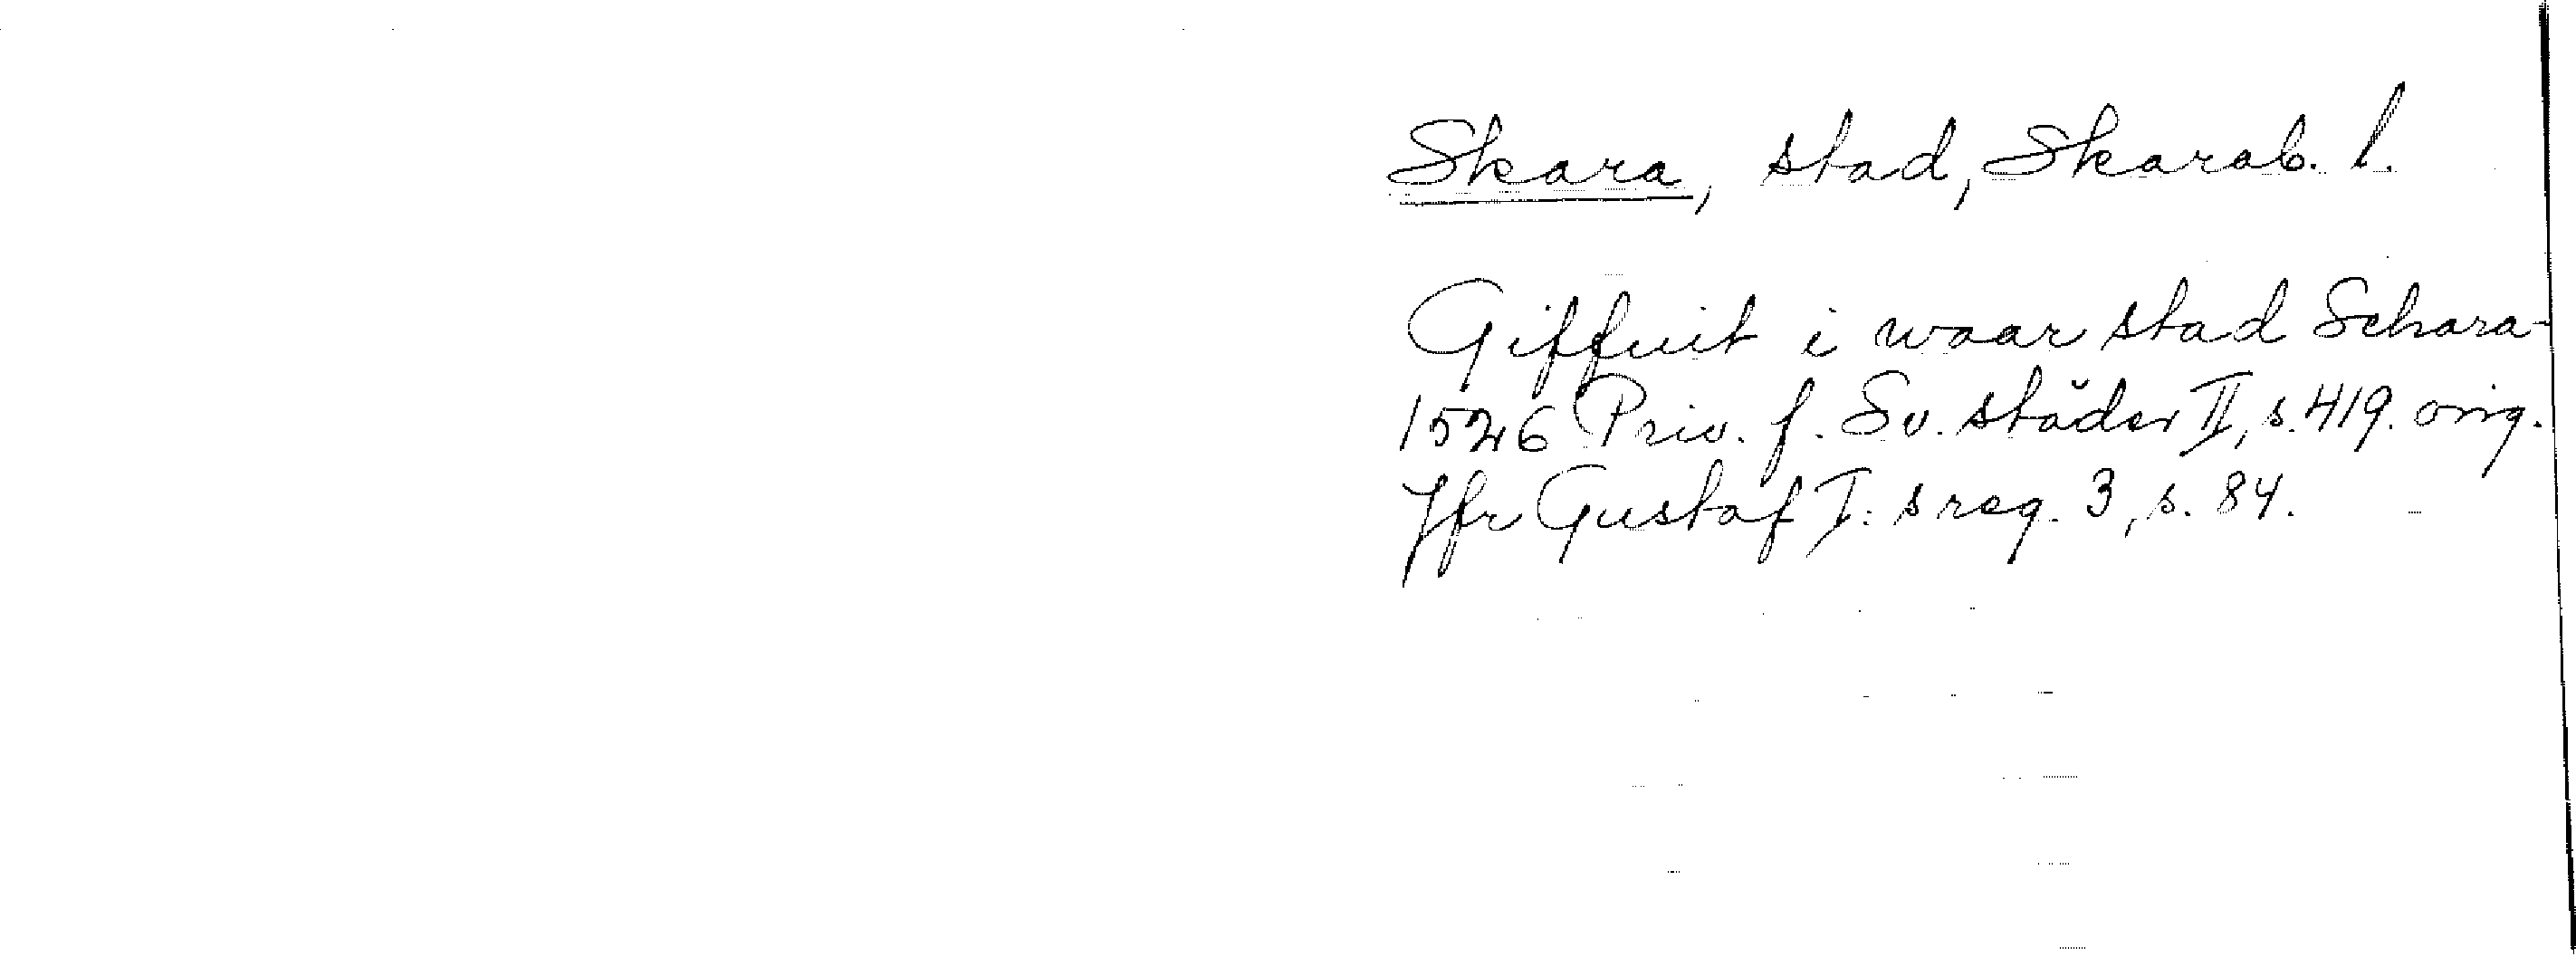 Skara, stad, Skarab. l.
Giffuit i waar stad Schara-
1526 Priv. f. Sv. städer II, s. 419. orig.
Jfr Gustaf I:s reg. 3, s. 84.